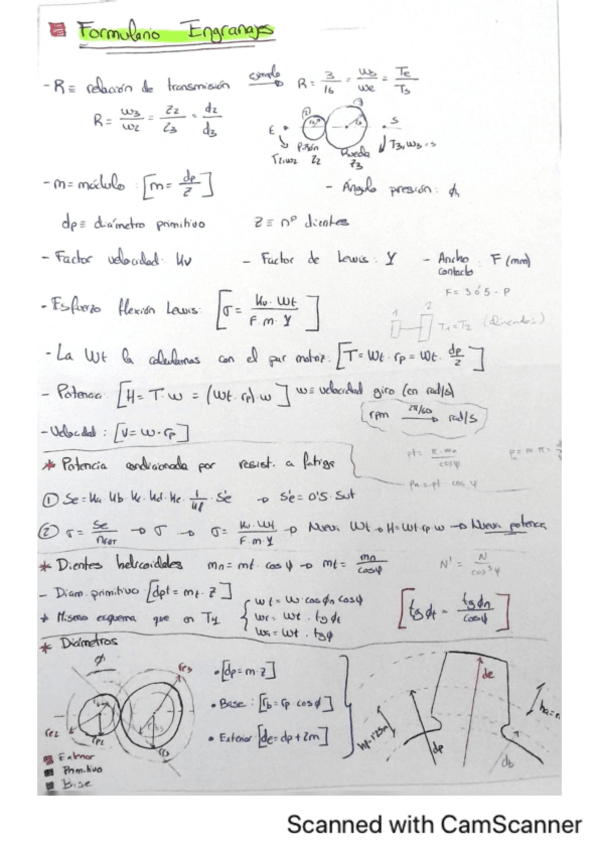 Formulario Engranajes
- R ≡ relación de transmisión ejemplo → R = 3/16 = ws/we = Te/Ts
R = w3/w2 = z2/z3 = d2/d3
E Piñón Rueda S
T2,w2 z2 z3 T3,w3 = s
- m = módulo : [m = dp/z] - Ángulo presión : ϕ
dp ≡ diámetro primitivo z ≡ nº dientes
- Factor velocidad : Kv - Factor de Lewis : Y - Ancho contacto : F (mm)
F = 3 ó 5 · P
- Esfuerzo flexión Lewis : [σ = Kv · Wt / F · m · Y]
1 2 T1 = T2
- La Wt la calculamos con el par motriz : [T = Wt · rp = Wt · dp/2]
- Potencia : [H = T · w = (Wt · rp) · w] w ≡ velocidad giro (en rad/s)
rpm 2π/60 → rad/s
- Velocidad : [V = w · rp]
* Potencia condicionada por resist. a fatiga
pt = π · mn / cosψ
pn = pt · cosψ
① Se = Ka Kb Kc Kd Ke 1/Kf S'e → S'e = 0'5 · Sut
② σ = Se/ncor → σ → σ = Kv · Wt / F · m · Y → Nueva Wt → H = Wt · rp · w → Nueva potencia
* Dientes helicoidales mn = mt · cosψ → mt = mn/cosψ N' = N/cos³ψ
- Diam. primitivo [dpt = mt · z]
* Mismo esquema que en T4 { Wt = W · cosϕn cosψ
Wr = Wt · tgϕt
Wa = Wt · tgψ
[tgϕt = tgϕn/cosψ]
* Diámetros
ϕ
re3
re2
rp2
• [dp = m · z]
• Base : [rb = rp cosϕ]
• Exterior [de = dp + 2m]
de
dp
db
Exterior
Primitivo
Base
Scanned with CamScanner